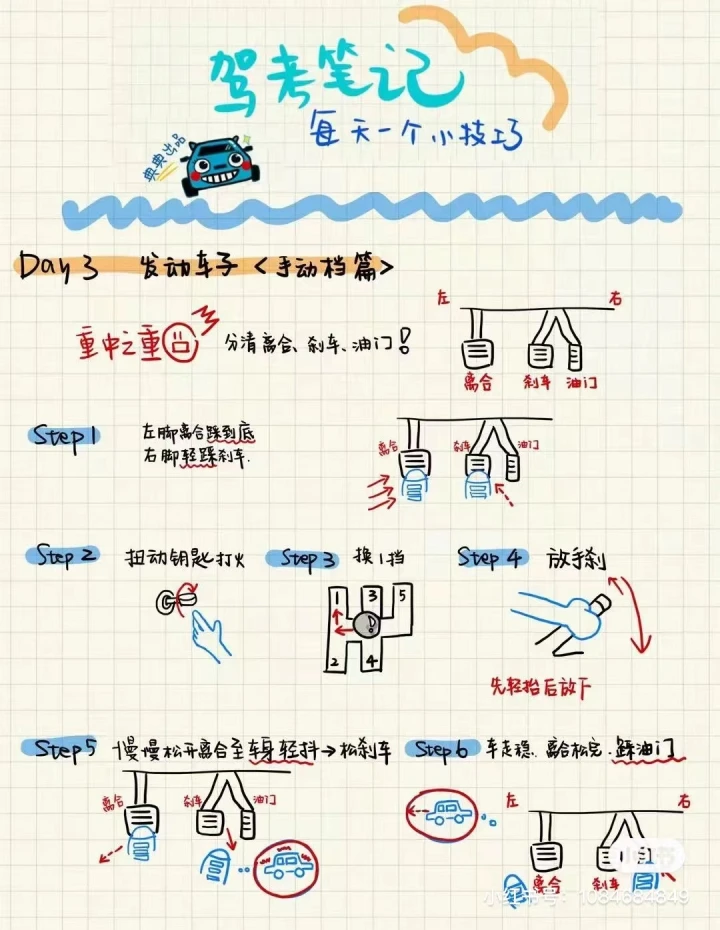 驾考笔记
每天一个小技巧
典典出品
Day 3 发动车子<手动档篇>
重中之重 分清离合、刹车、油门!
左 右
离合 刹车 油门
Step 1 左脚离合踩到底
右脚轻踩刹车.
离合 刹车 油门
Step 2 扭动钥匙打火
Step 3 换1挡
1 3 5
2 4
Step 4 放手刹
先轻抬后放下
Step 5 慢慢松开离合至车身轻抖→松刹车
离合 刹车 油门
Step 6 车走稳.离合松完.踩油门
左 右
离合 刹车
小红书
小红书号:1084684849